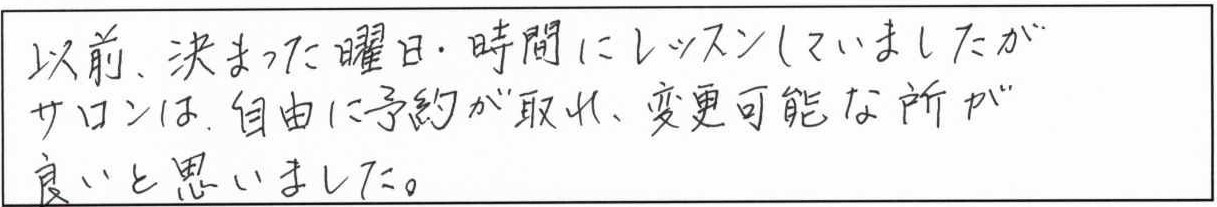 以前、決まった曜日・時間にレッスンしていましたが
サロンは、自由に予約が取れ、変更可能な所が
良いと思いました。